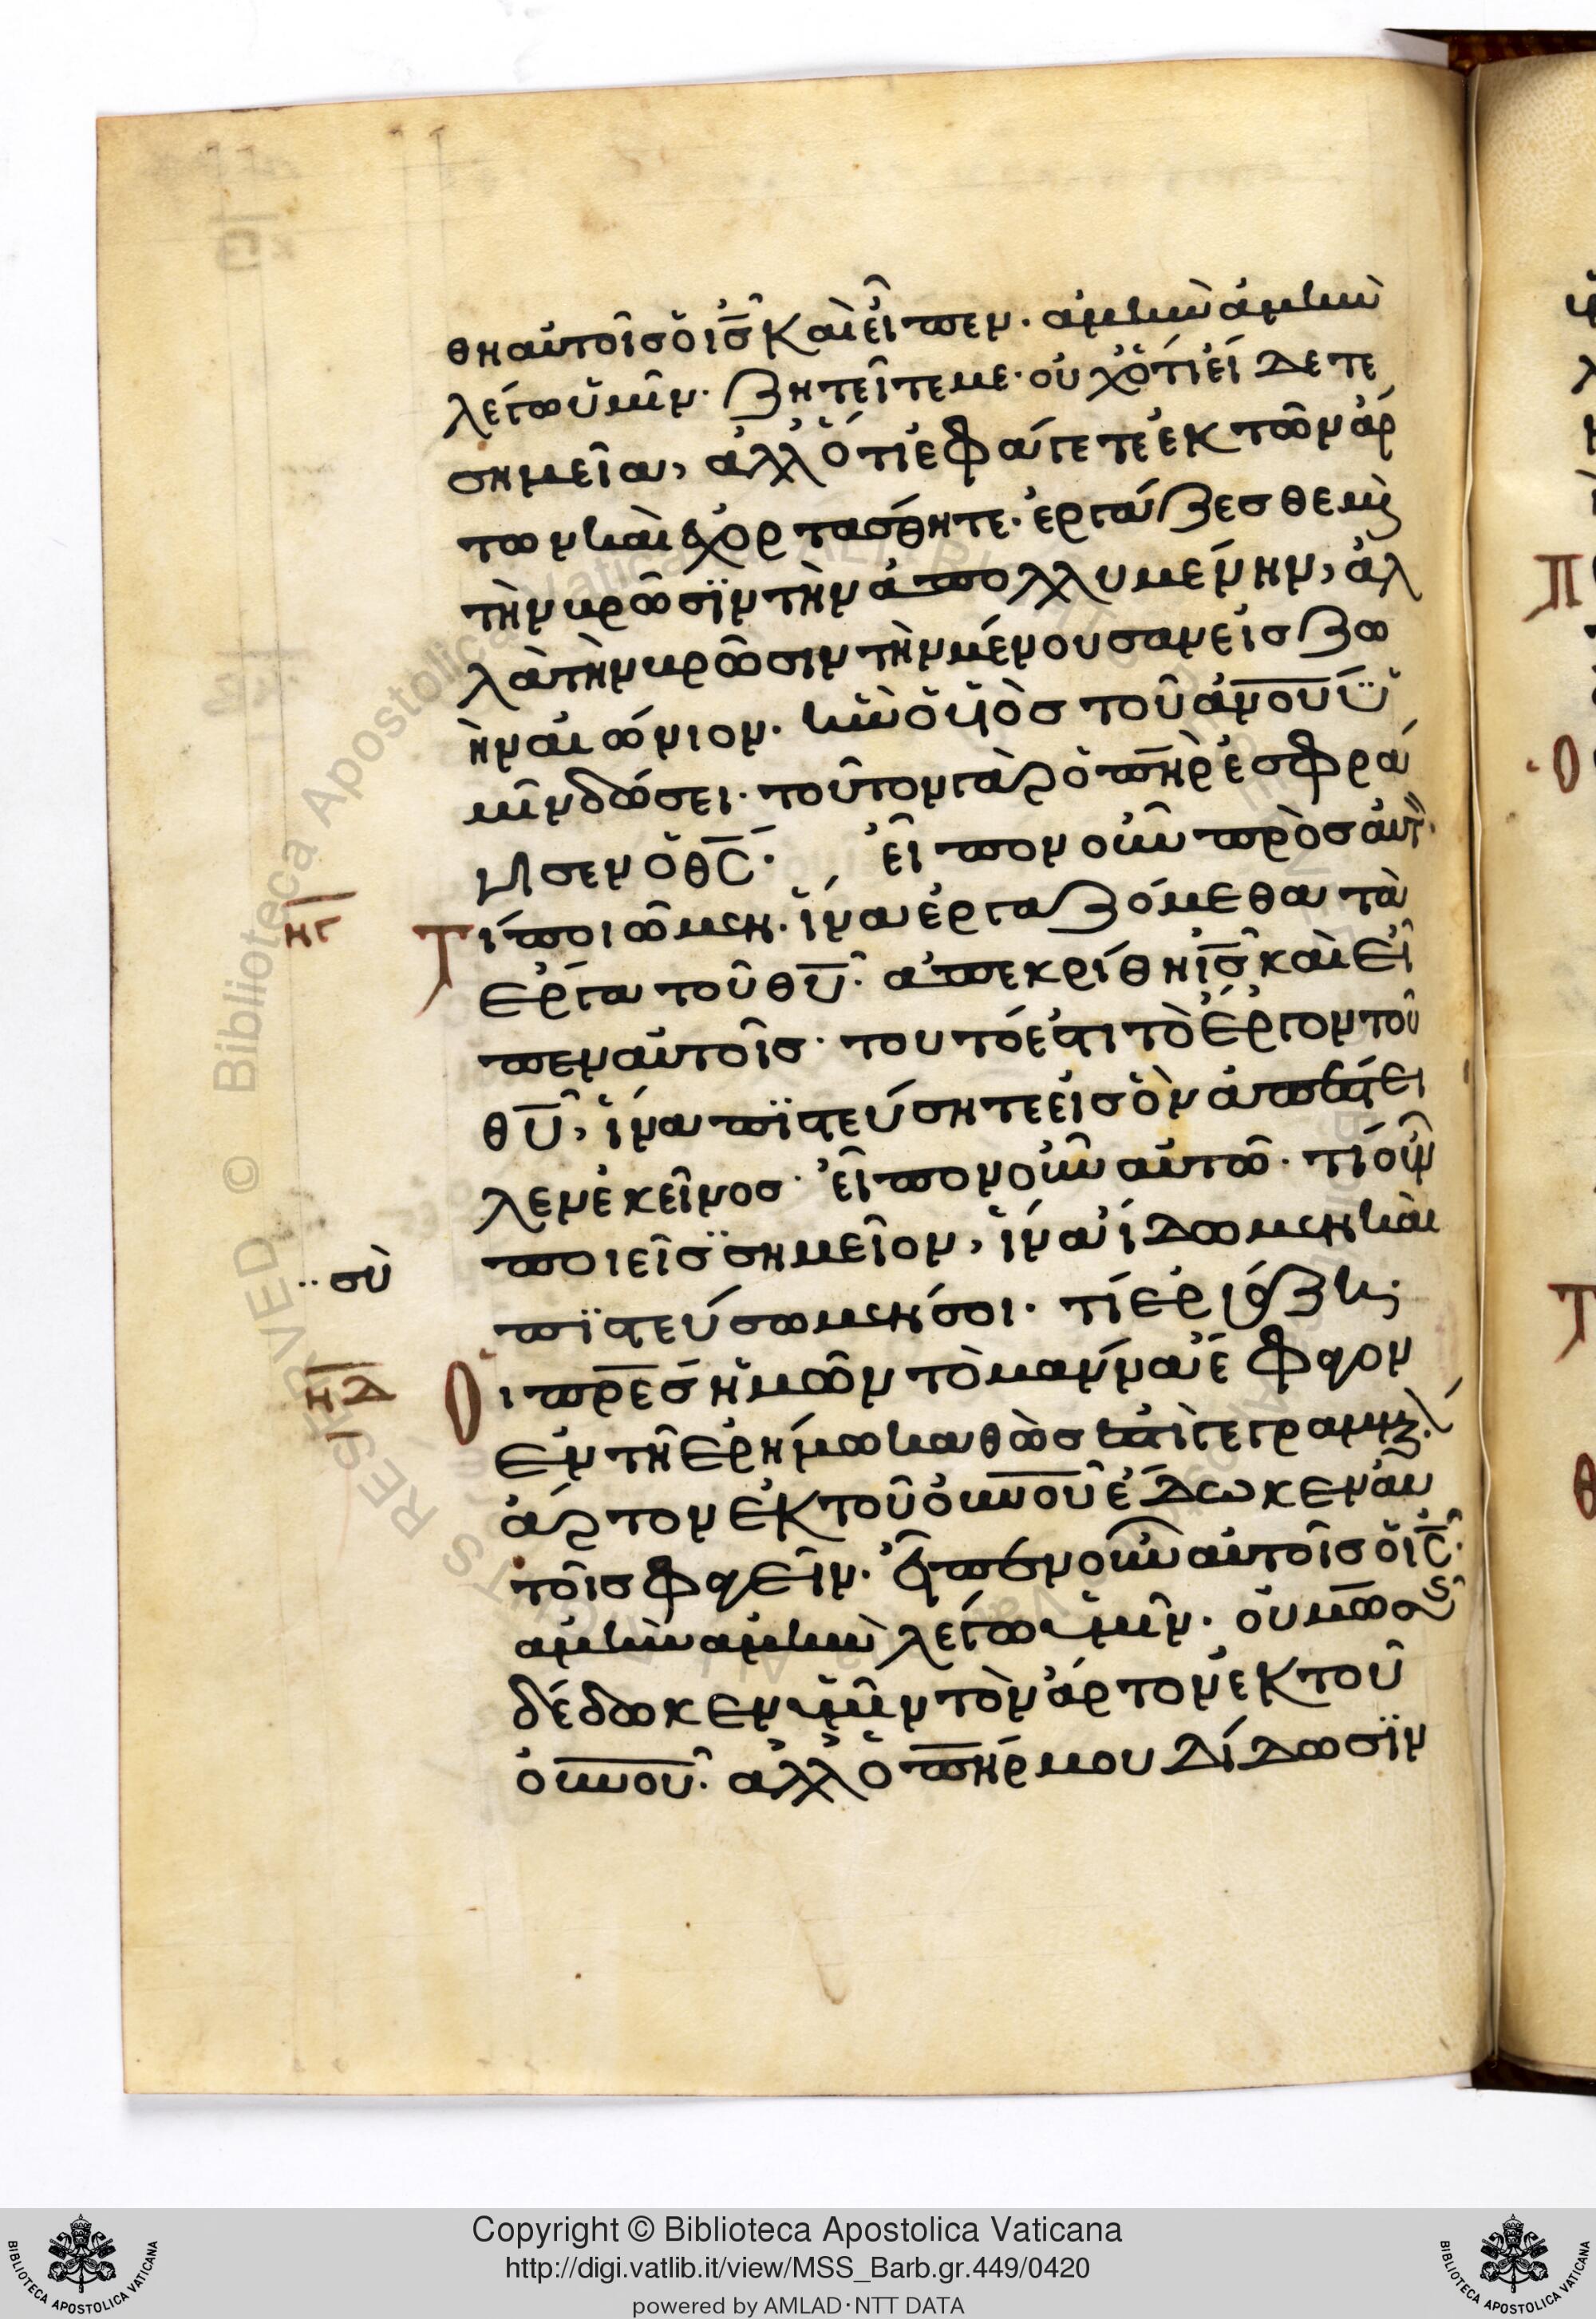 θη αὐτοῖς ὁ ις̅ καὶ εἶπεν· ἀμὴν ἀμὴν
λέγω ὑμῖν· ζητεῖτε με· οὐχ ὅτι εἴδετε
σημεῖα, ἀλλ' ὅτι ἐφάγετε ἐκ τῶν ἄρ
των καὶ ἐχορτάσθητε· ἐργάζεσθε μὴ
τὴν βρῶσϊν τὴν ἀπολλυμένην, ἀλ
λὰ τὴν βρῶσιν τὴν μένουσαν εἰς ζω
ὴν αἰώνιον· ἣν ὁ υἱὸς τοῦ α̅ν̅ο̅υ̅ ὑ
μῖν δώσει· τοῦτον γὰρ ὁ π̅η̅ρ̅ ἐσφρά
γισεν ὁ θ̅ς̅· εἶπον οὖν πρὸς αὐτ·
Τί ποιῶμεν· ἵνα ἐργαζόμεθα τὰ
ἔργα τοῦ θ̅υ̅· ἀπεκρίθη ι̅ς̅ καὶ εἶ
πεν αὐτοῖς· τουτό ἐστι τὸ ἔργον τοῦ
θ̅υ̅, ἵνα πϊστεύσητε εἰς ὃν ἀπέστει
λεν ἐκεῖνος· εἶπον οὖν αὐτῶ· τί οὖν
ποιεῖς σημεῖον, ἵνα ἴδωμεν καὶ
·· σὺ
πϊστεύσωμεν σοι· τί ἐργάζη;
Οἱ π̅ρ̅ε̅ς̅ ἡμῶν τὸ μάννα ἔφαγον
ἐν τῆ ἐρήμω καθὼς ἐστὶ γεγραμμέν·
ἄρτον ἐκ τοῦ ο̅υ̅ν̅ο̅υ̅ ἔδωκεν αὐ
τοῖς φαγεῖν· εἶπεν οὖν αὐτοῖς ὁ ι̅ς̅·
ἀμὴν ἀμὴν λέγω ὑμῖν· οὐ μωσῆς
δέδωκεν ὑμῖν τὸν ἄρτον ἐκ τοῦ
ο̅υ̅ν̅ο̅υ̅· ἀλλ' ὁ π̅η̅ρ̅ μου δίδωσϊν
Copyright © Biblioteca Apostolica Vaticana
http://digi.vatlib.it/view/MSS_Barb.gr.449/0420
powered by AMLAD·NTT DATA
BIBLIOTECA APOSTOLICA VATICANA
BIBLIOTECA APOSTOLICA VATICANA